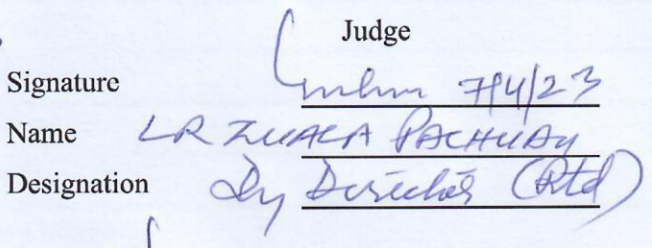 Judge
Signature 7/4/23
Name LR ZUALA PACHUAU
Designation Dy Director (Rtd)